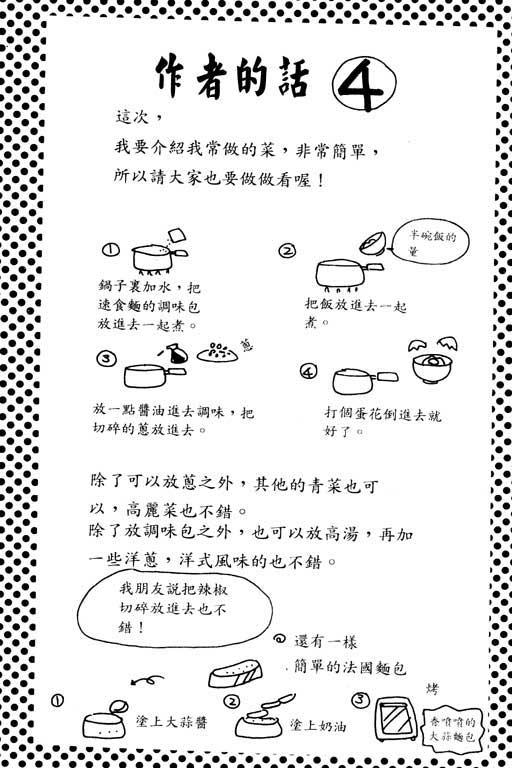 作者的話 4
這次，
我要介紹我常做的菜，非常簡單，
所以請大家也要做做看喔！
①
鍋子裏加水，把
速食麵的調味包
放進去一起煮。
②
半碗飯的
量
把飯放進去一起
煮。
③
蔥
放一點醬油進去調味，把
切碎的蔥放進去。
④
打個蛋花倒進去就
好了。
除了可以放蔥之外，其他的青菜也可
以，高麗菜也不錯。
除了放調味包之外，也可以放高湯，再加
一些洋蔥，洋式風味的也不錯。
我朋友說把辣椒
切碎放進去也不
錯！
還有一樣
簡單的法國麵包
①
塗上大蒜醬
②
塗上奶油
③
烤
香噴噴的
大蒜麵包